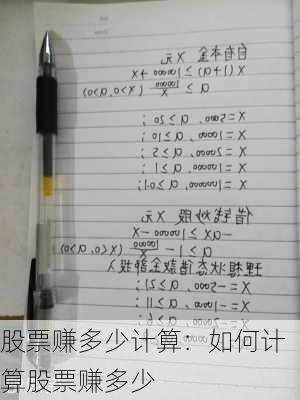 自有本金 X 元
X(1+a) ≥ 100000 + X
a ≥ 100000/X (X>0, a>0)
X=5000, a≥20;
X=10000, a≥10;
X=20000, a≥5;
X=100000, a≥1;
X=1000000, a≥0.1;
借钱炒股 X 元
-aX ≥ 100000 - X
a ≥ 1 - 100000/X (X<0, a>0)
理想状态借款全部投入
X=-5000, a≥21;
X=-10000, a≥11;
X=-20000, a≥6;
股票赚多少计算：如何计
算股票赚多少